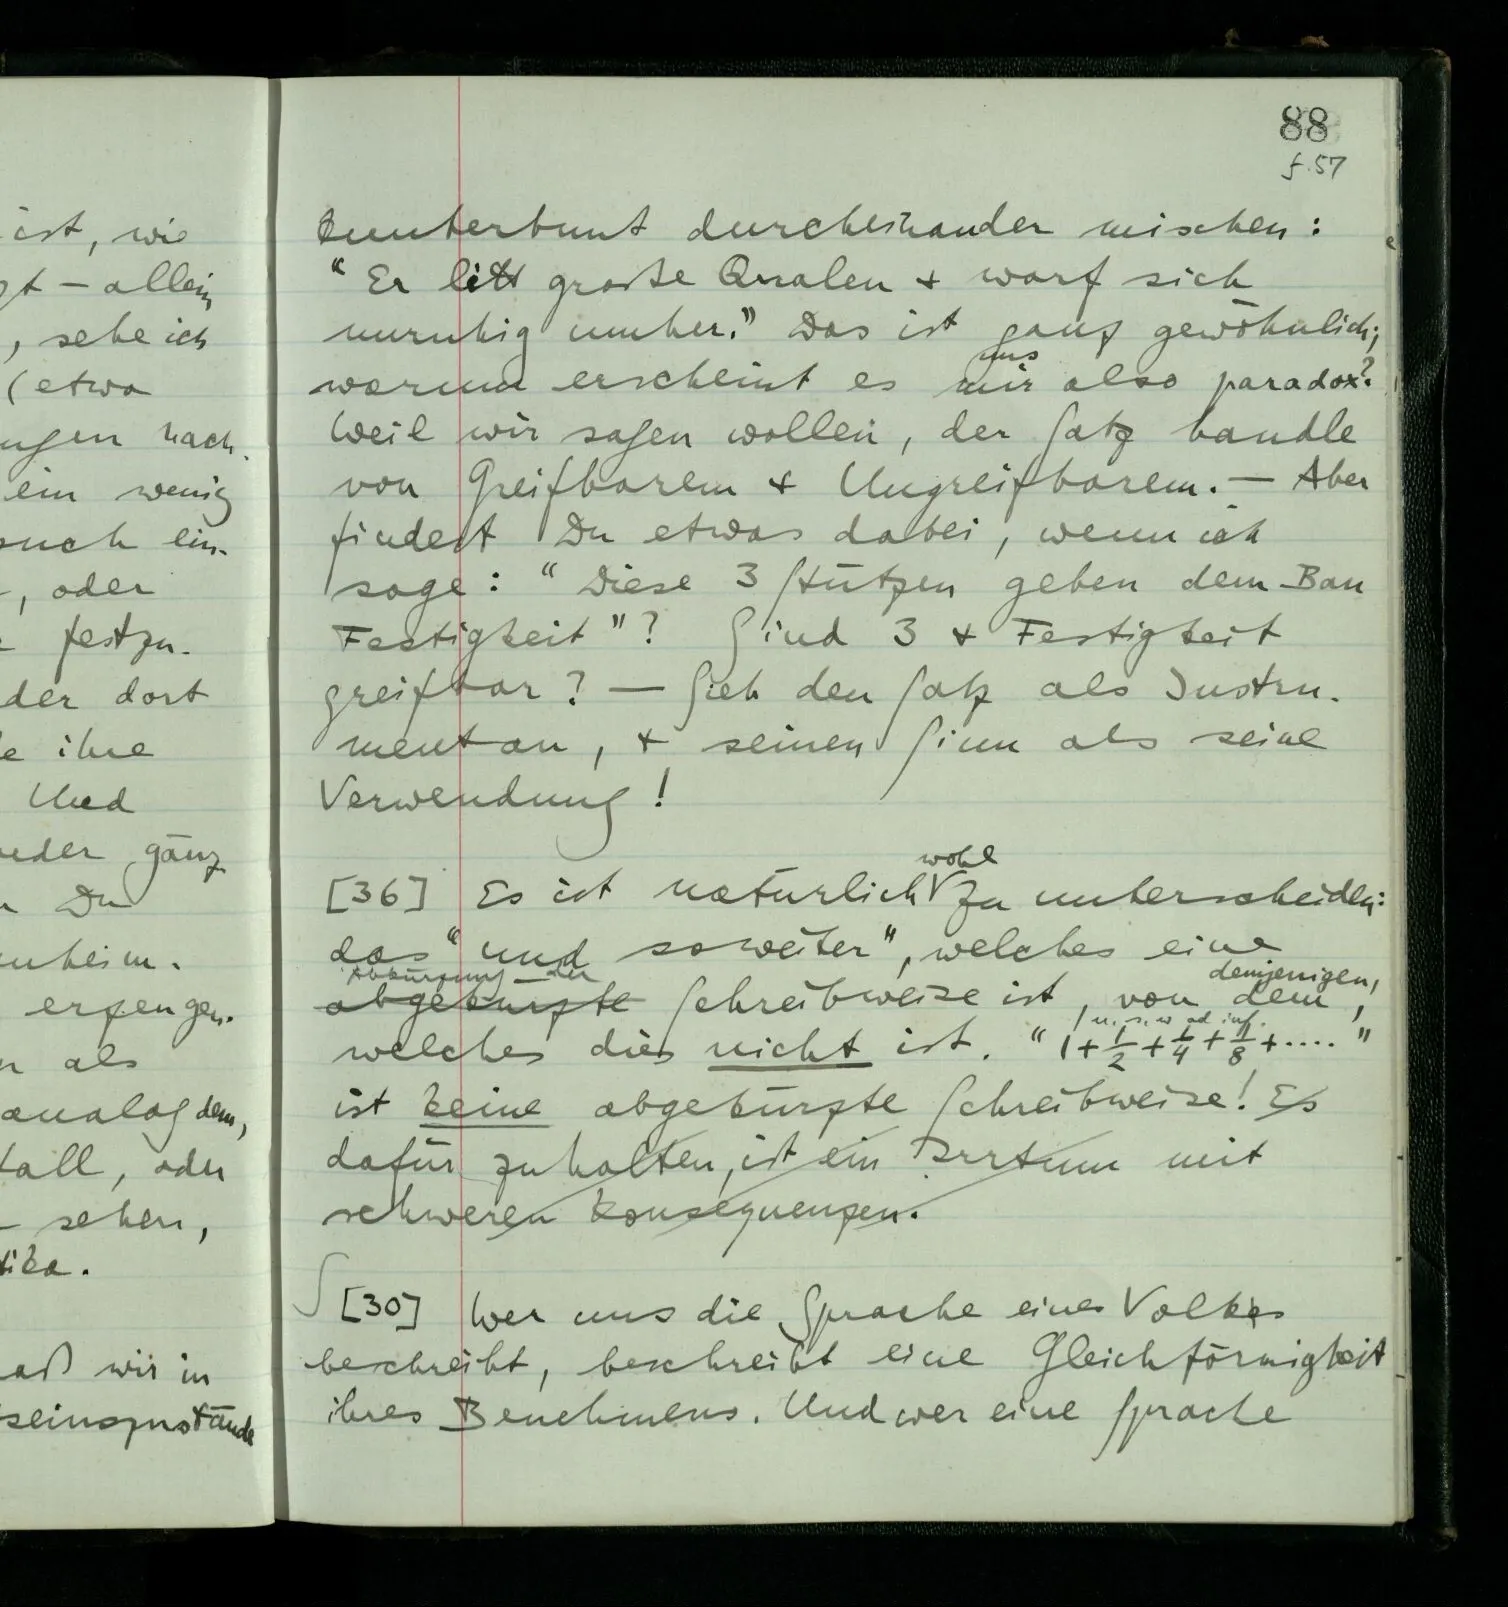 ist, wie
gt – allein
, sehe ich
(etwa
ungen nach
ein wenig
such ein-
, oder
festzu-
der dort
ihre
Und
weder gänz
Du
nheim.
erzeugen.
als
analog dem,
fall, oder
sehen,
tika.
daß wir in
tseinszustände
88
f. 57
kunterbunt durcheinander mischen:
"Er litt große Qualen + warf sich
unruhig umher." Das ist ganz gewöhnlich;
uns
warum erscheint es mir also paradox?
Weil wir sagen wollen, der Satz handle
von Greifbarem + Ungreifbarem. – Aber
findest Du etwas dabei, wenn ich
sage: "Diese 3 Stützen geben dem Bau
Festigkeit"? Sind 3 + Festigkeit
greifbar? – Sieh den Satz als Instru-
ment an, + seinen Sinn als seine
Verwendung!
wohl
[36] Es ist natürlich zu unterscheiden:
das "und soweiter", welches eine
Abkürzung der demjenigen,
abgekürzte Schreibweise ist, von dem,
u.s.w ad inf.
welches dies nicht ist. "1 + 1/2 + 1/4 + 1/8 + ...."
ist keine abgekürzte Schreibweise! Es
dafür zu halten, ist ein Irrtum mit
schweren Konsequenzen.
[30] Wer uns die Sprache eines Volkes
beschreibt, beschreibt eine Gleichförmigkeit
ihres Benehmens. Und wer eine Sprache